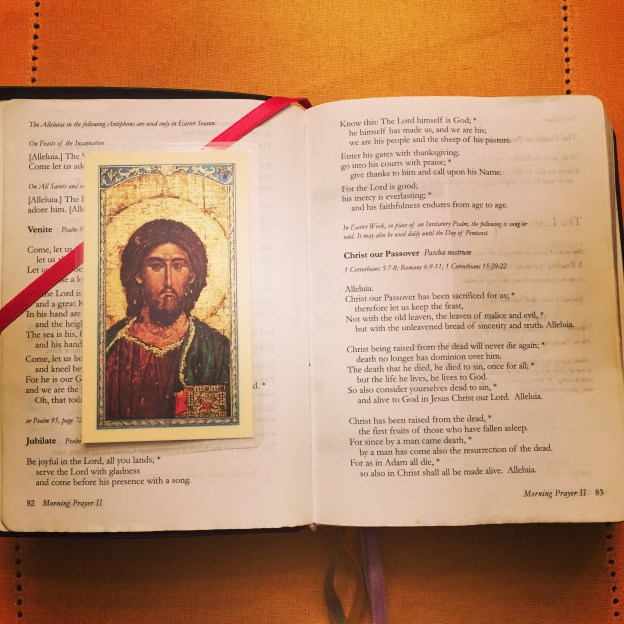 The Alleluias in the following Antiphons are used only in Easter Season.
On Feasts of the Incarnation
[Alleluia.] The
Come let us ado
On All Saints and
[Alleluia.] The
adore him. [Allel
Venite Psalm 9
Come, let us
let us sh
Let us
the Lord is
and a great K
In his hand are
and the heigh
The sea is his, f
and his hand
Come, let us bo
and kneel be
For he is our G
and we are the
d. *
Oh, that tod
or Psalm 95, page 72
Jubilate Psalm
Be joyful in the Lord, all you lands; *
serve the Lord with gladness
and come before his presence with a song.
82 Morning Prayer II
Know this: The Lord himself is God; *
he himself has made us, and we are his;
we are his people and the sheep of his pasture.
Enter his gates with thanksgiving;
go into his courts with praise; *
give thanks to him and call upon his Name.
For the Lord is good;
his mercy is everlasting; *
and his faithfulness endures from age to age.
In Easter Week, in place of an Invitatory Psalm, the following is sung or
said. It may also be used daily until the Day of Pentecost.
Christ our Passover Pascha nostrum
1 Corinthians 5:7-8; Romans 6:9-11; 1 Corinthians 15:20-22
Alleluia.
Christ our Passover has been sacrificed for us; *
therefore let us keep the feast,
Not with the old leaven, the leaven of malice and evil, *
but with the unleavened bread of sincerity and truth. Alleluia.
Christ being raised from the dead will never die again; *
death no longer has dominion over him.
The death that he died, he died to sin, once for all; *
but the life he lives, he lives to God.
So also consider yourselves dead to sin, *
and alive to God in Jesus Christ our Lord. Alleluia.
Christ has been raised from the dead, *
the first fruits of those who have fallen asleep.
For since by a man came death, *
by a man has come also the resurrection of the dead.
For as in Adam all die, *
so also in Christ shall all be made alive. Alleluia.
Morning Prayer II 83